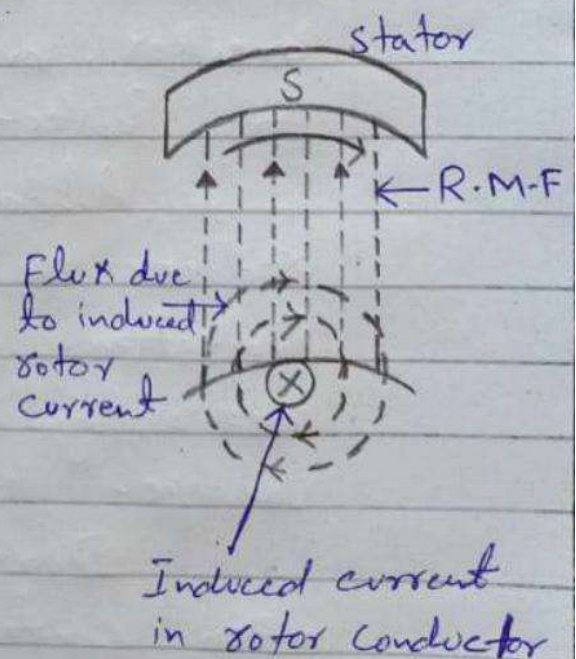 Stator
S
R.M.F
Flux due
to induced
rotor
current
X
Induced current
in rotor conductor